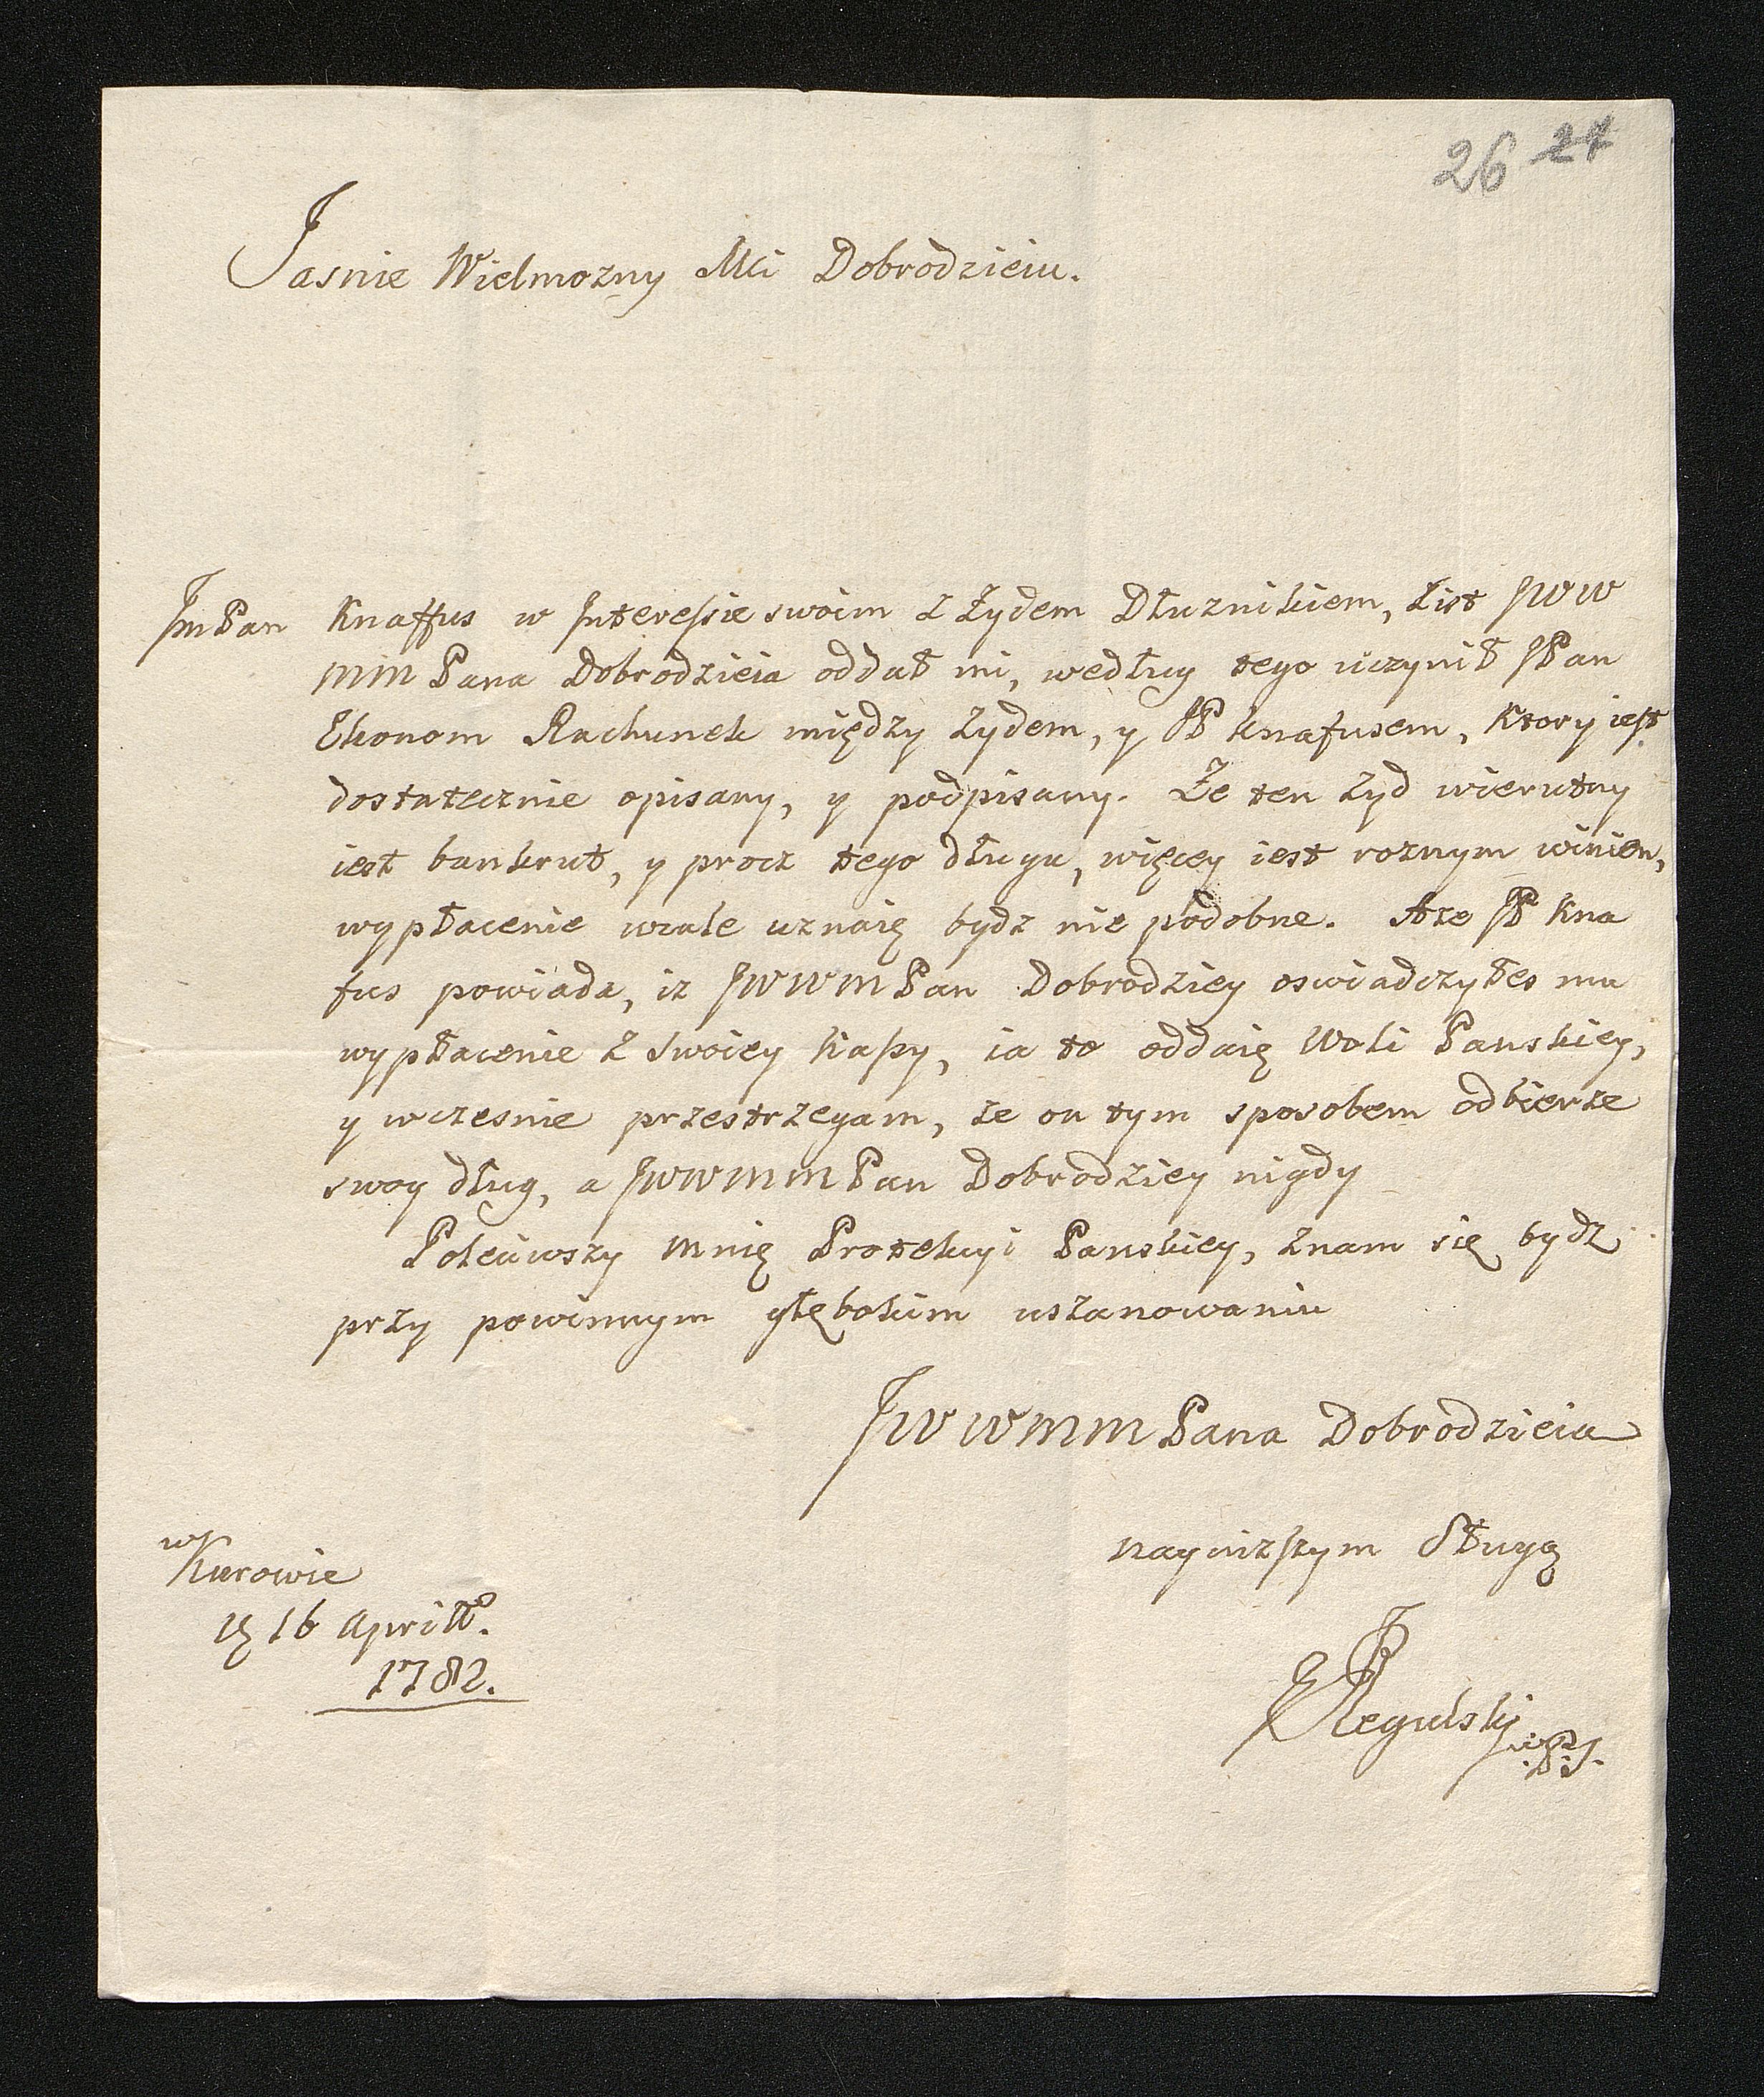 26 27
Jasnie Wielmozny Mci Dobrodzieiu.
JmPan Knaffus w Interessie swoim z Żydem Dłuznikiem, List JWW
MM Pana Dobrodzieia oddał mi, według tego uczynił JPan
Ekonom Rachunek między Zydem, y JP Knafusem, Ktory iest
dostatecznie opisany, y podpisany. Że ten Zyd wierutny
iest bankrut, y procz tego długu, więcey iest roznym winien,
wypłacenie wcale uznaię bydz nie podobne. Aze JP Kna
fus powiada, iz JWWMPan Dobrodziey oswiadczyłes mu
wypłacenie z swoiey Kassy, ia to oddaię Woli Panskiey,
y wczesnie przestrzegam, ze on tym sposobem odbierze
swoy dług, a JWWMMPan Dobrodziey nigdy
Poleciwszy mnię Protekcyi Panskiey, znam się bydz
przy powinnym głębokim uszanowaniu
JWWMMPana Dobrodzieia
nayniższym Sługą
w Kurowie
16 Aprill.
1782.
Regulski